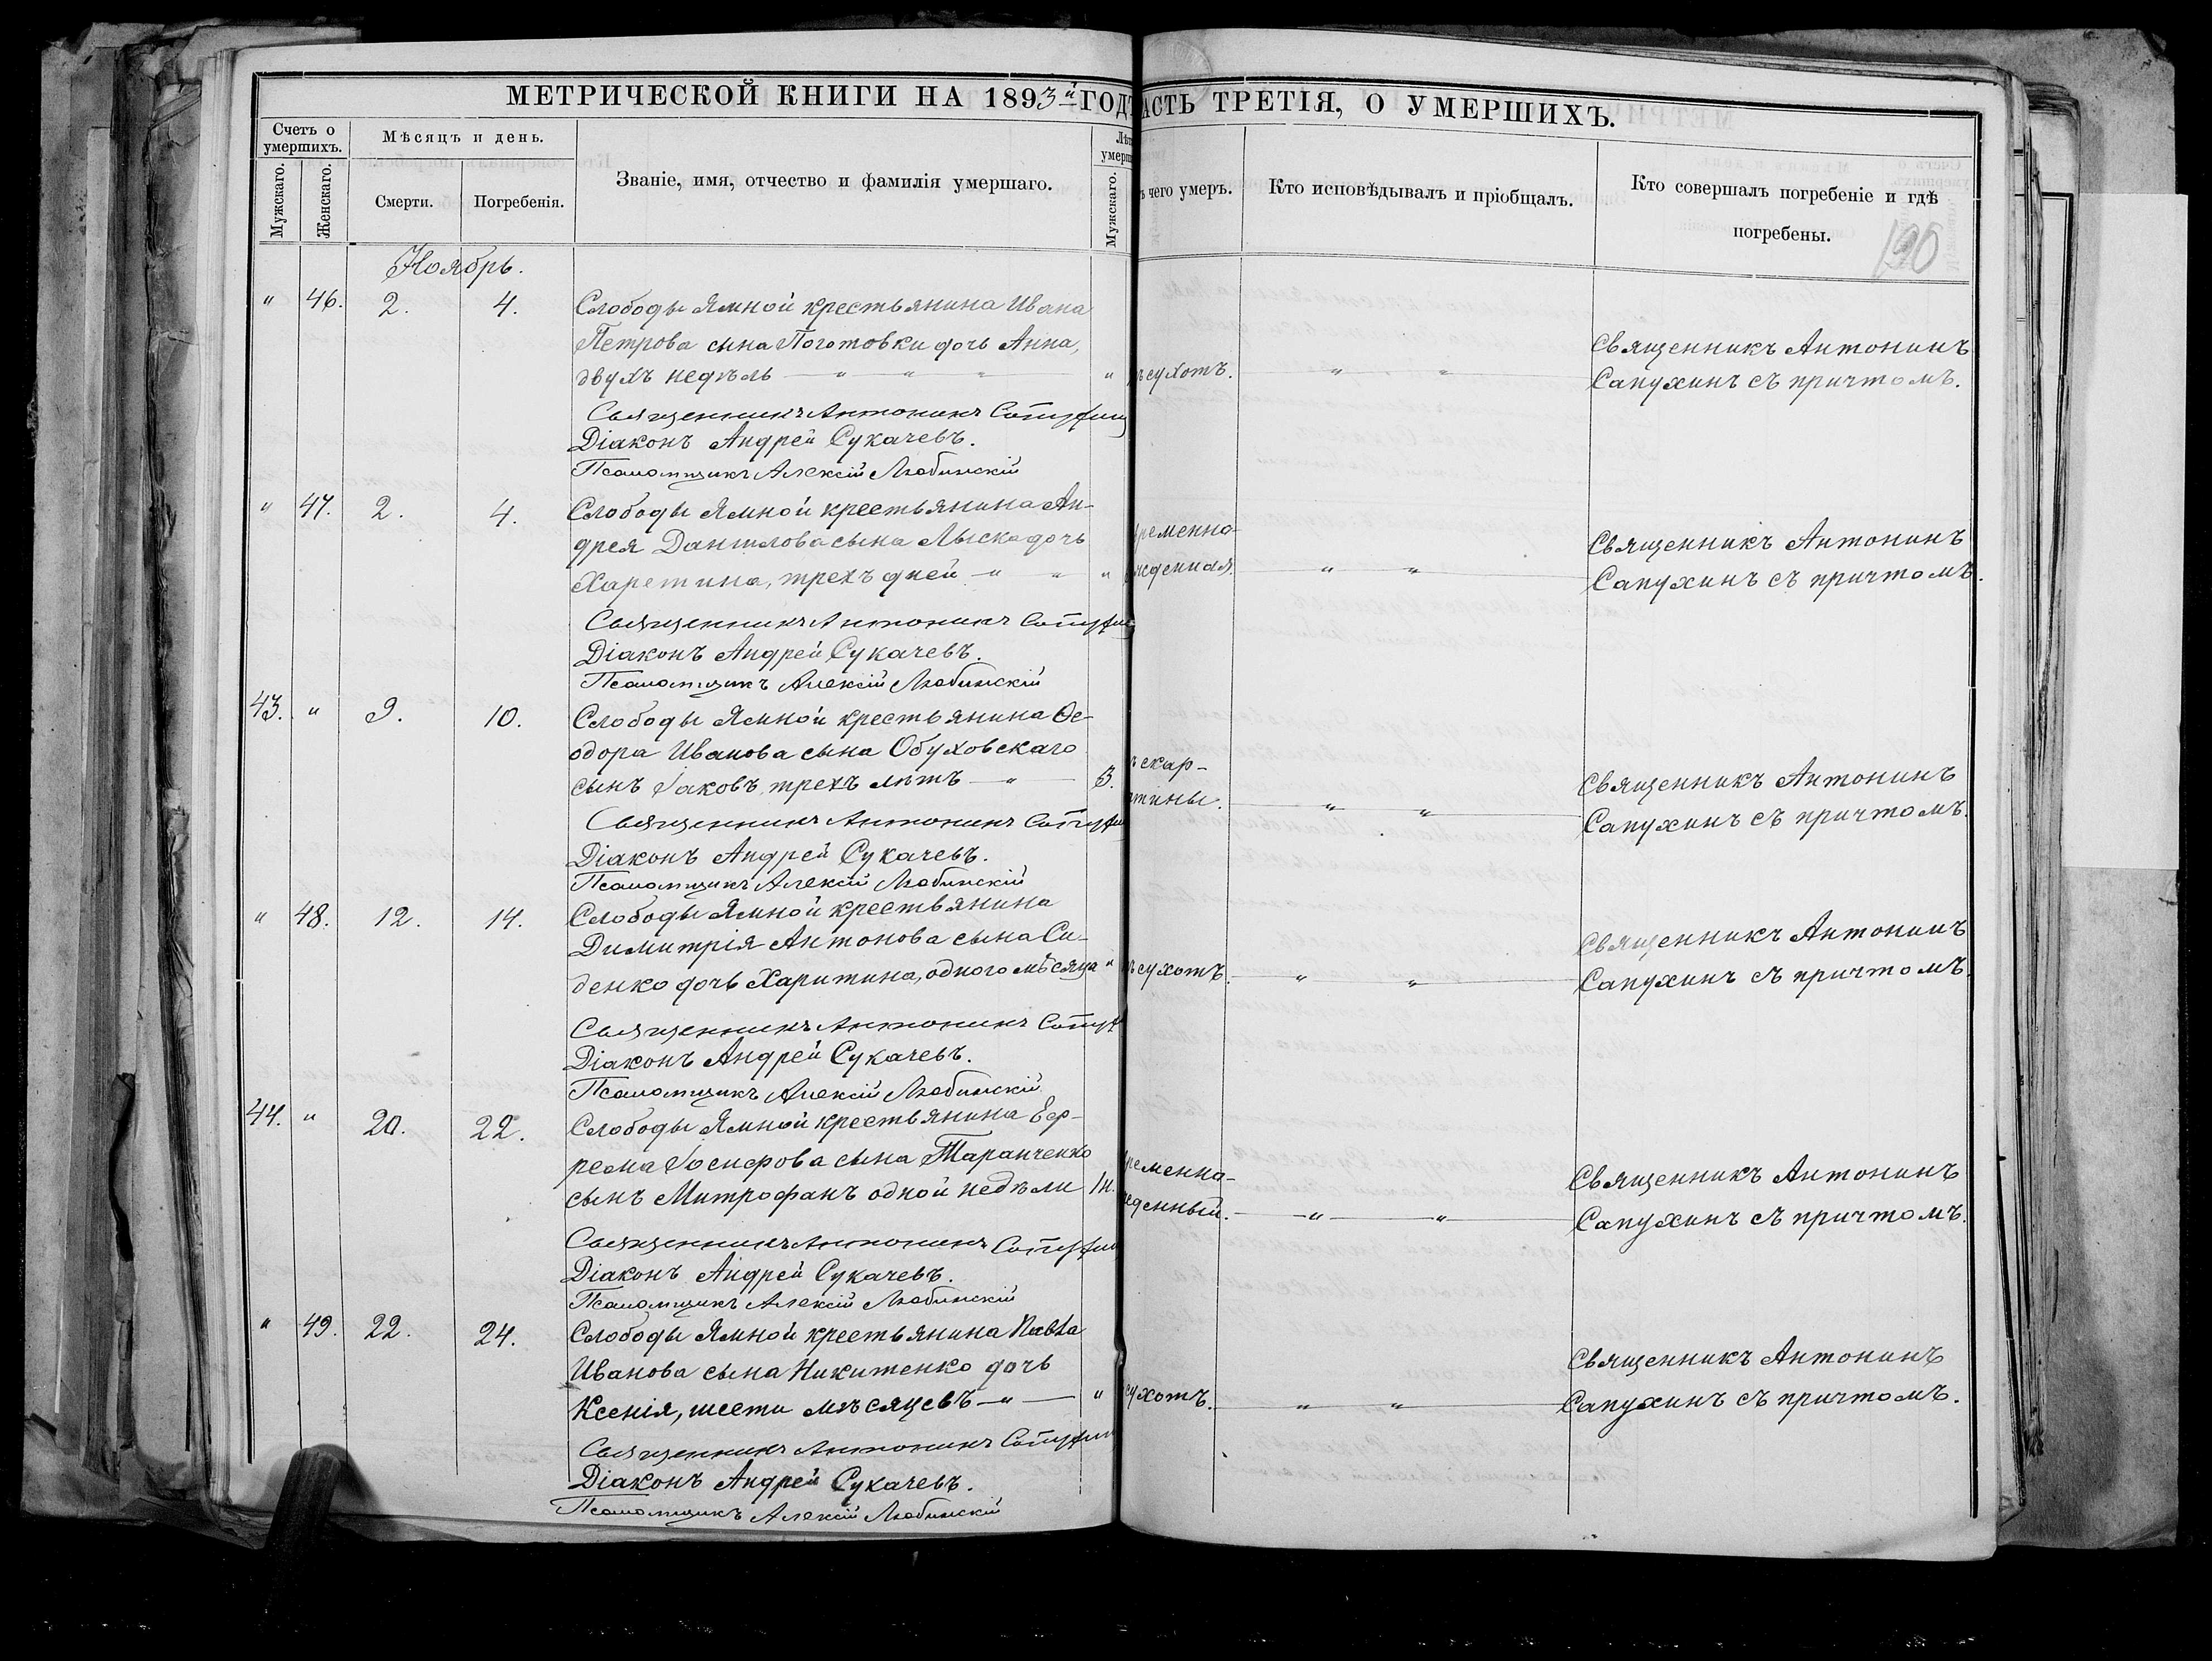 МЕТРИЧЕСКОЙ КНИГИ НА 1893й ГОДЪ
АСТЬ ТРЕТІЯ, О УМЕРШИХЪ.
Счетъ о умершихъ.
Мужскаго.
Женскаго.
Мѣсяцъ и день.
Смерти.
Погребенія.
Званіе, имя, отчество и фамилія умершаго.
Лѣт
умерш
Мужскаго.
ъ чего умеръ.
Кто исповѣдывалъ и пріобщалъ.
Кто совершалъ погребеніе и гдѣ
погребены.
190
Ноябрь.
" 46. 2. 4. Слободы Ямной крестьянина Ивана
Петрова сына Поготовки дочь Анна,
двухъ недѣль " " " "
ъ сухотъ. " "
Священникъ Антонинъ
Сапухинъ съ причтомъ.
Священникъ Антонинъ Сапухин
Діаконъ Андрей Сукачевъ.
Псаломщикъ Алексій Любинскій
" 47. 2. 4. Слободы Ямной крестьянина Ан-
дрея Данилова сына Лыска дочь
Харетина, трехъ дней " " "
ременно-
жденная. " "
Священникъ Антонинъ
Сапухинъ съ причтомъ.
Священникъ Антонинъ Сапухин
Діаконъ Андрей Сукачевъ.
Псаломщикъ Алексій Любинскій
43. " 9. 10. Слободы Ямной крестьянина Ѳе-
одора Иванова сына Обуховскаго
сынъ Іаковъ трехъ лѣтъ " 3.
ъ скар-
тины. " "
Священникъ Антонинъ
Сапухинъ съ причтомъ.
Священникъ Антонинъ Сапухин
Діаконъ Андрей Сукачевъ.
Псаломщикъ Алексій Любинскій
" 48. 12. 14. Слободы Ямной крестьянина
Димитрія Антонова сына Си-
денко дочь Харитина, одного мѣсяца "
ъ сухотъ. " "
Священникъ Антонинъ
Сапухинъ съ причтомъ.
Священникъ Антонинъ Сапух
Діаконъ Андрей Сукачевъ.
Псаломщикъ Алексій Любинскій
44. " 20. 22. Слободы Ямной крестьянина Еф-
рема Іосифова сына Таранченко
сынъ Митрофанъ одной недѣли 1н.
ременно-
жденный. " "
Священникъ Антонинъ
Сапухинъ съ причтомъ.
Священникъ Антонинъ Сапухин
Діаконъ Андрей Сукачевъ.
Псаломщикъ Алексій Любинскій
" 49. 22. 24. Слободы Ямной крестьянина Павла
Иванова сына Никитенко дочь
Ксенія, шести мѣсяцевъ " "
сухотъ. " "
Священникъ Антонинъ
Сапухинъ съ причтомъ.
Священникъ Антонинъ Сапухин
Діаконъ Андрей Сукачевъ.
Псаломщикъ Алексій Любинскій